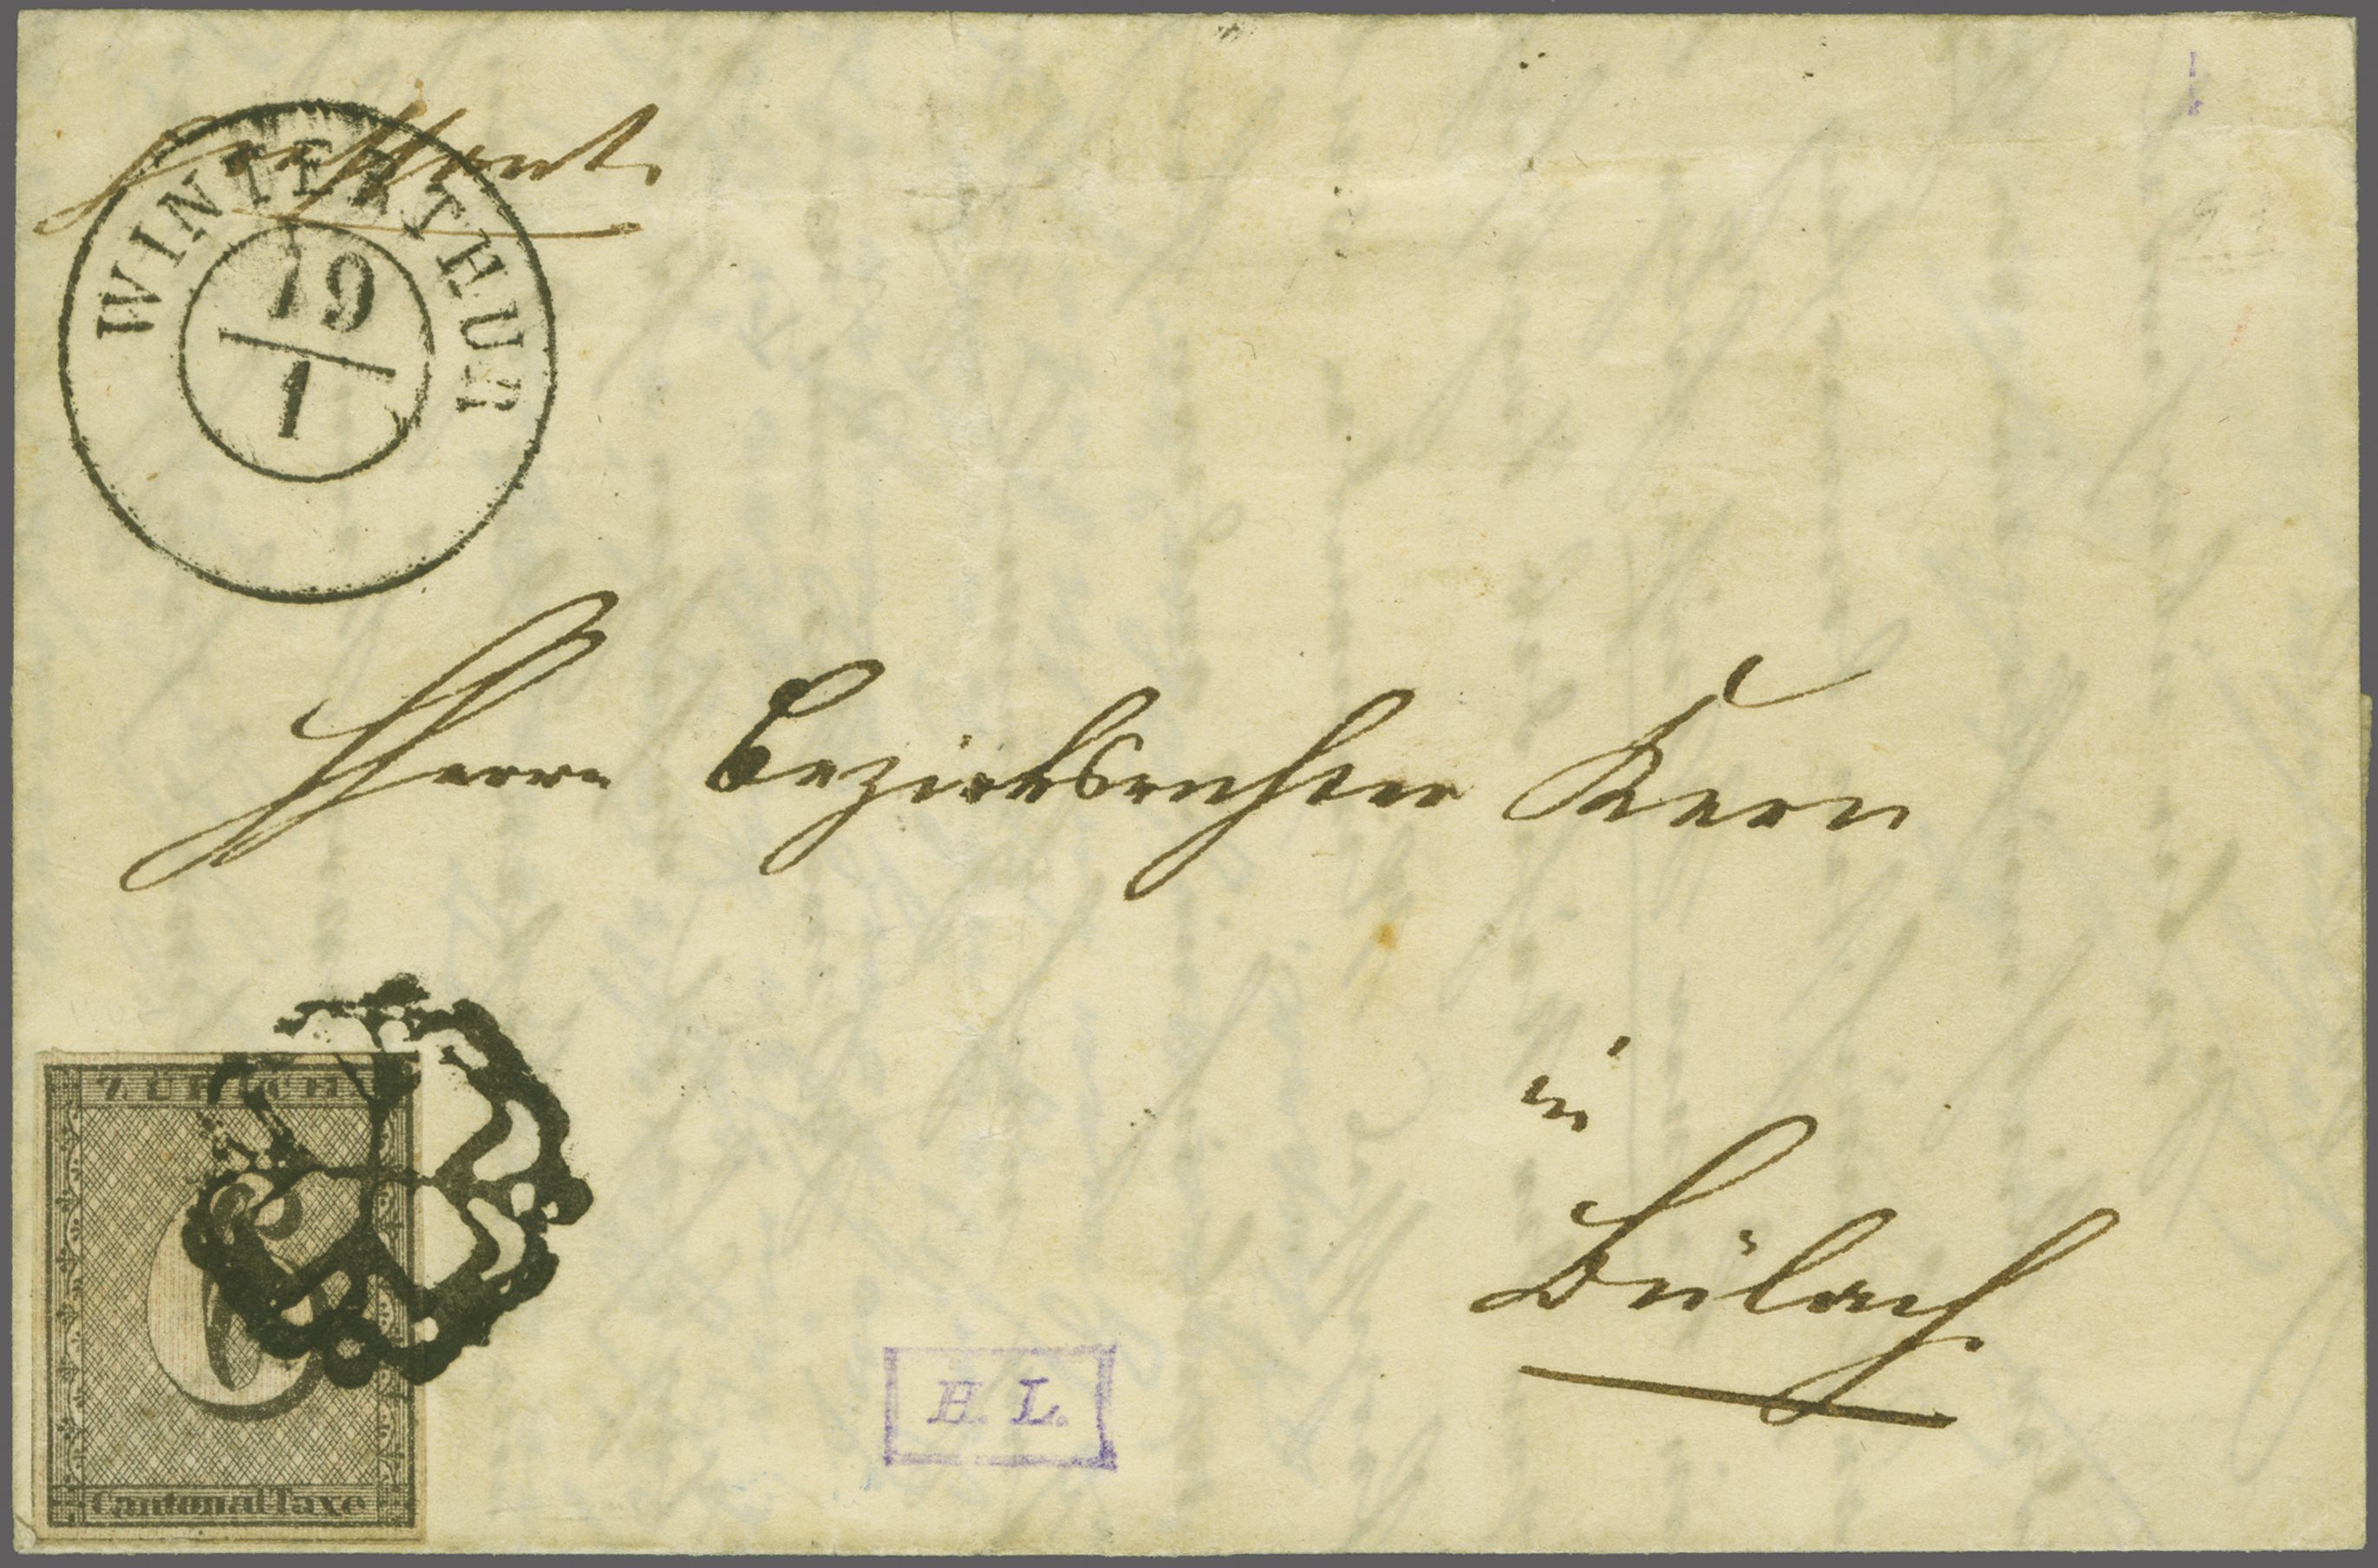 WINTERTHUR
19
1
Herrn Bezirksrichter Kern
in
Bülach
ZÜRICH
6
Cantonal Taxe
H. L.